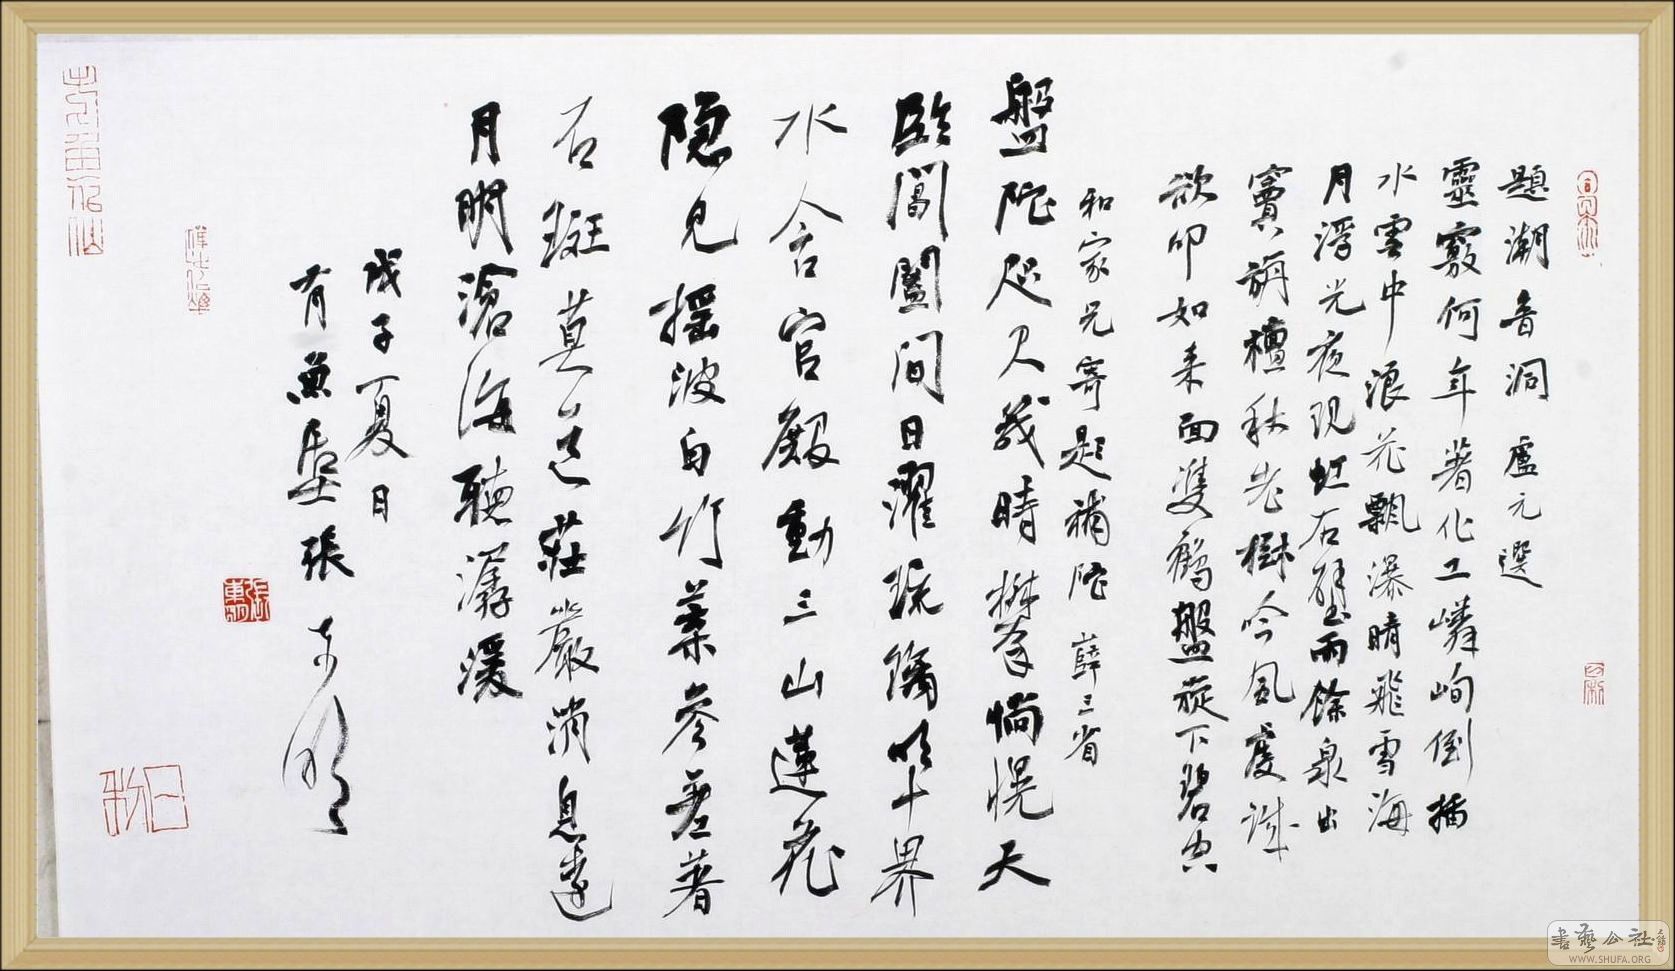 題潮音洞 盧元選
靈竅何年著化工嶙峋倒插
水雲中浪花飄瀑晴飛雪海
月浮光夜現虹石壁雨餘泉出
竇旃檀秋老樹吟風虔誠
欲叩如来面隻鶴盤旋下碧空
和家兄寄題補陀 薛三省
盤陀咫尺幾晴攀惝恍天
臨閶闔間日濯琉璃明十界
水含官殿動三山蓮花
隱見搖波白竹葉參差著
石斑莫道莊嚴消息遠
月明滄海聽潺湲
戊子夏日
有魚堂張東明
書藝公社
WWW.SHUFA.ORG